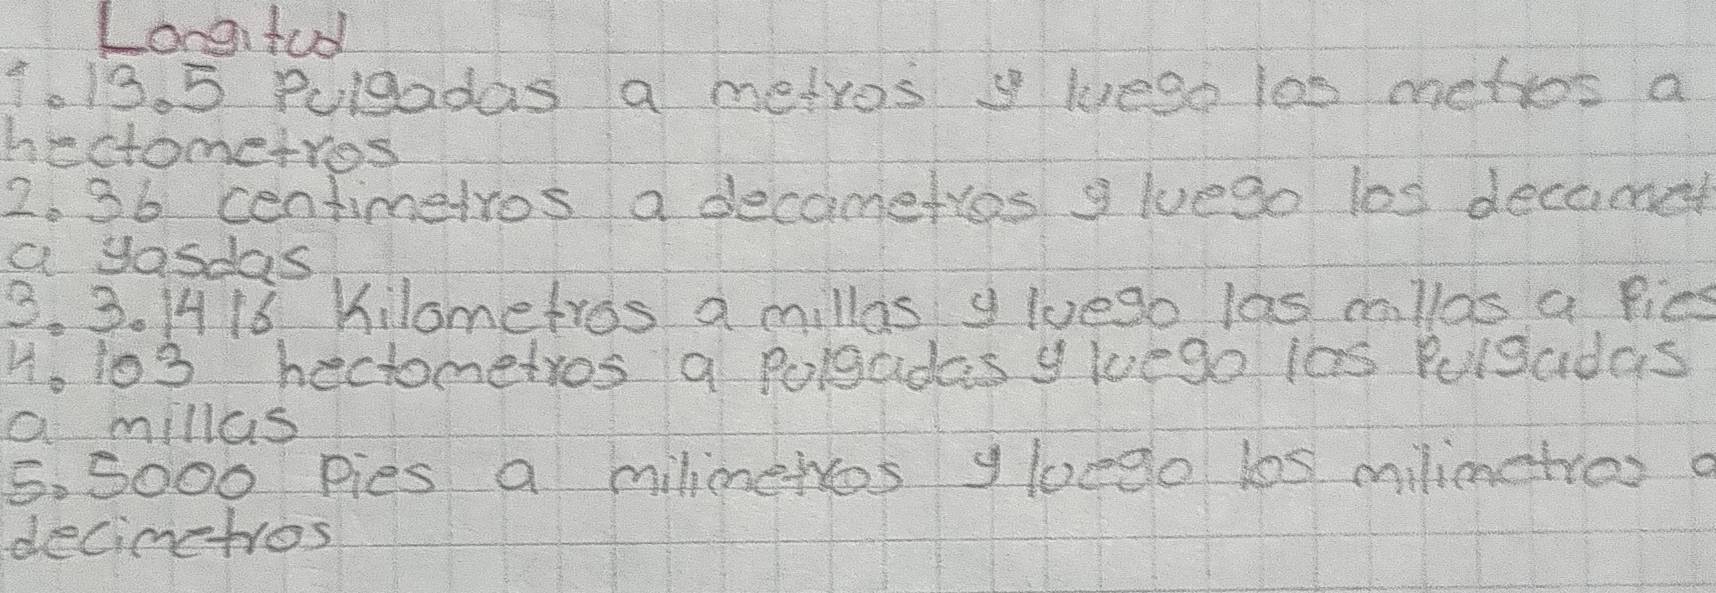 Longitud
1. 13.5 Pulgadas a metros y luego los metros a
hectometros
2. 36 centimetros a decametros y luego los decamet
a yasdas
3. 3.1416 Kilometros a millas y luego las millas a Pies
4. 103 hectometros a Pulgadas y luego las Pulgadas
a millas
5. 5000 Pies a milimetros y luego los milimetros a
decimetros